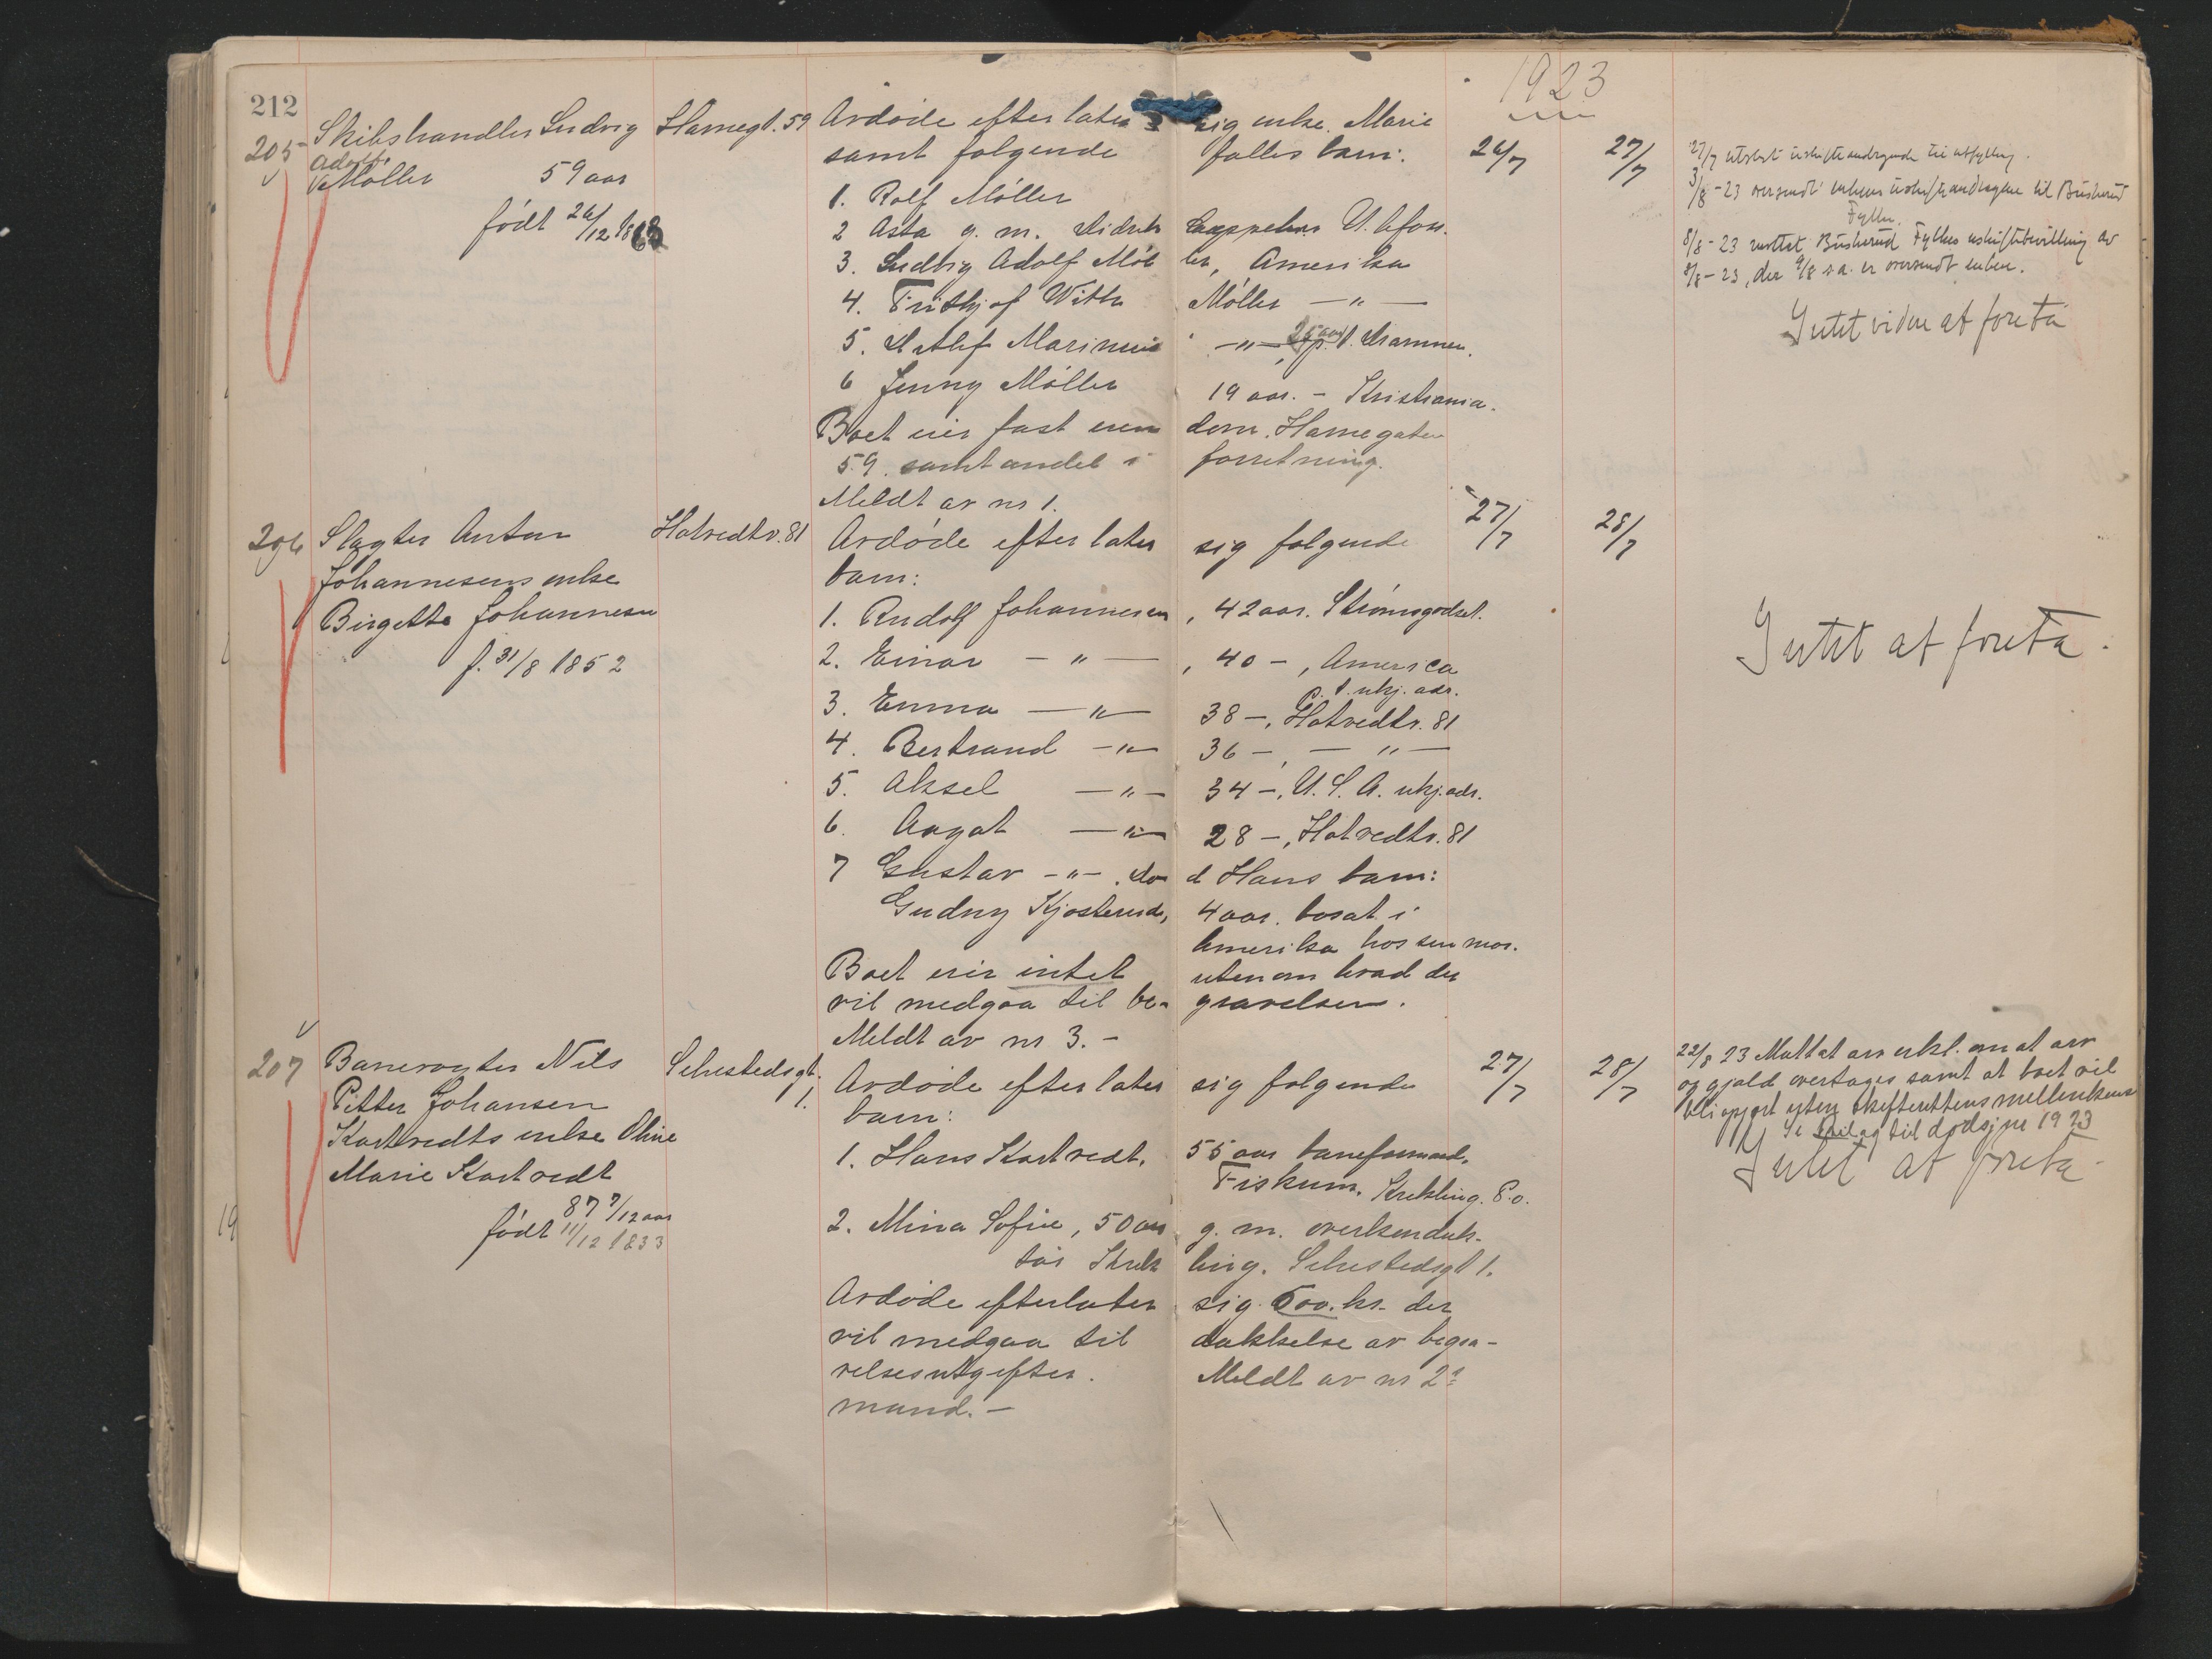 212
1923
205 Skibshandler Ludvig Havnegt. 59 Avdøde efterlater sig enke Marie 26/7 27/7
Adolf
Møller 59 aar samt følgende fælles barn:
født 26/12 1863
1. Rolf Møller
2 Asta g. m. Didrik Cappelen U.
3. Ludvig Adolf Møller, Amerika
4. Frithjof Møller —"—
5. Marinius —"— 25 aar p. t. Drammen.
6 Jenny Møller 19 aar. - Kristiania.
Boet eier fast eiendom. Havnegaten
59. samt andel i forretning.
Meldt av nr 1.
3/8-23 oversendt enkens til Buskerud
Fylke.
8/8-23 mottat Buskerud Fylkes uskiftebevilling av
8/8-23, der 9/8 s.a. er oversendt enken.
Intet videre at foreta
206 Slagter Anton Hotvedtv. 81 Avdøde efterlater sig følgende 27/7 28/7
Johannesens enke barn:
Birgitte Johannesen
f. 31/8 1852
1. Rudolf Johannesen, 42 aar. Strømsgodset.
2. Einar —"—, 40 —, America
p. t. ukj. adr.
3. Emma —"— 38 —, Hotvedtv. 81
4. Bertrand —"— 36 —, —"—
5. Aksel —"— 34 —, U.S.A. ukj. adr.
6. Aagot —"— 28 —, Hotvedtv. 81
7 Gustav —"—. død Hans barn:
Gudny Kjøsterud, 4 aar. bosat i
Amerika hos sin mor.
Boet eier intet utenom hvad der
vil medgaa til begravelsen.
Meldt av nr 3. -
Intet at foreta.
207 Banevogter Nils Sehestedsgt. 1. Avdøde efterlater sig følgende 27/7 28/7
Petter Johansen barn:
Kortvedts enke Oline
Marie Kortvedt
87 7/12 aar
født 11/12 1833
1. Hans Kortvedt, 55 aar baneformand,
Fiskum, Krekling. P.o.
2. Mina Sofie, 50 aar g. m. overkonduk-
tør Krekling. Sehestedsgt 1.
Avdøde efterlater sig 500. kr. der
vil medgaa til dækkelse av begra-
velsesutgifter. Meldt av nr 2s
mand. -
22/8 23 Mottat arv erkl. om at arv
og gjæld overtages samt at boet vil
bli opgjort uten skifterettens mellemkomst
Se bilag til dødsjur 1923
Intet at foreta